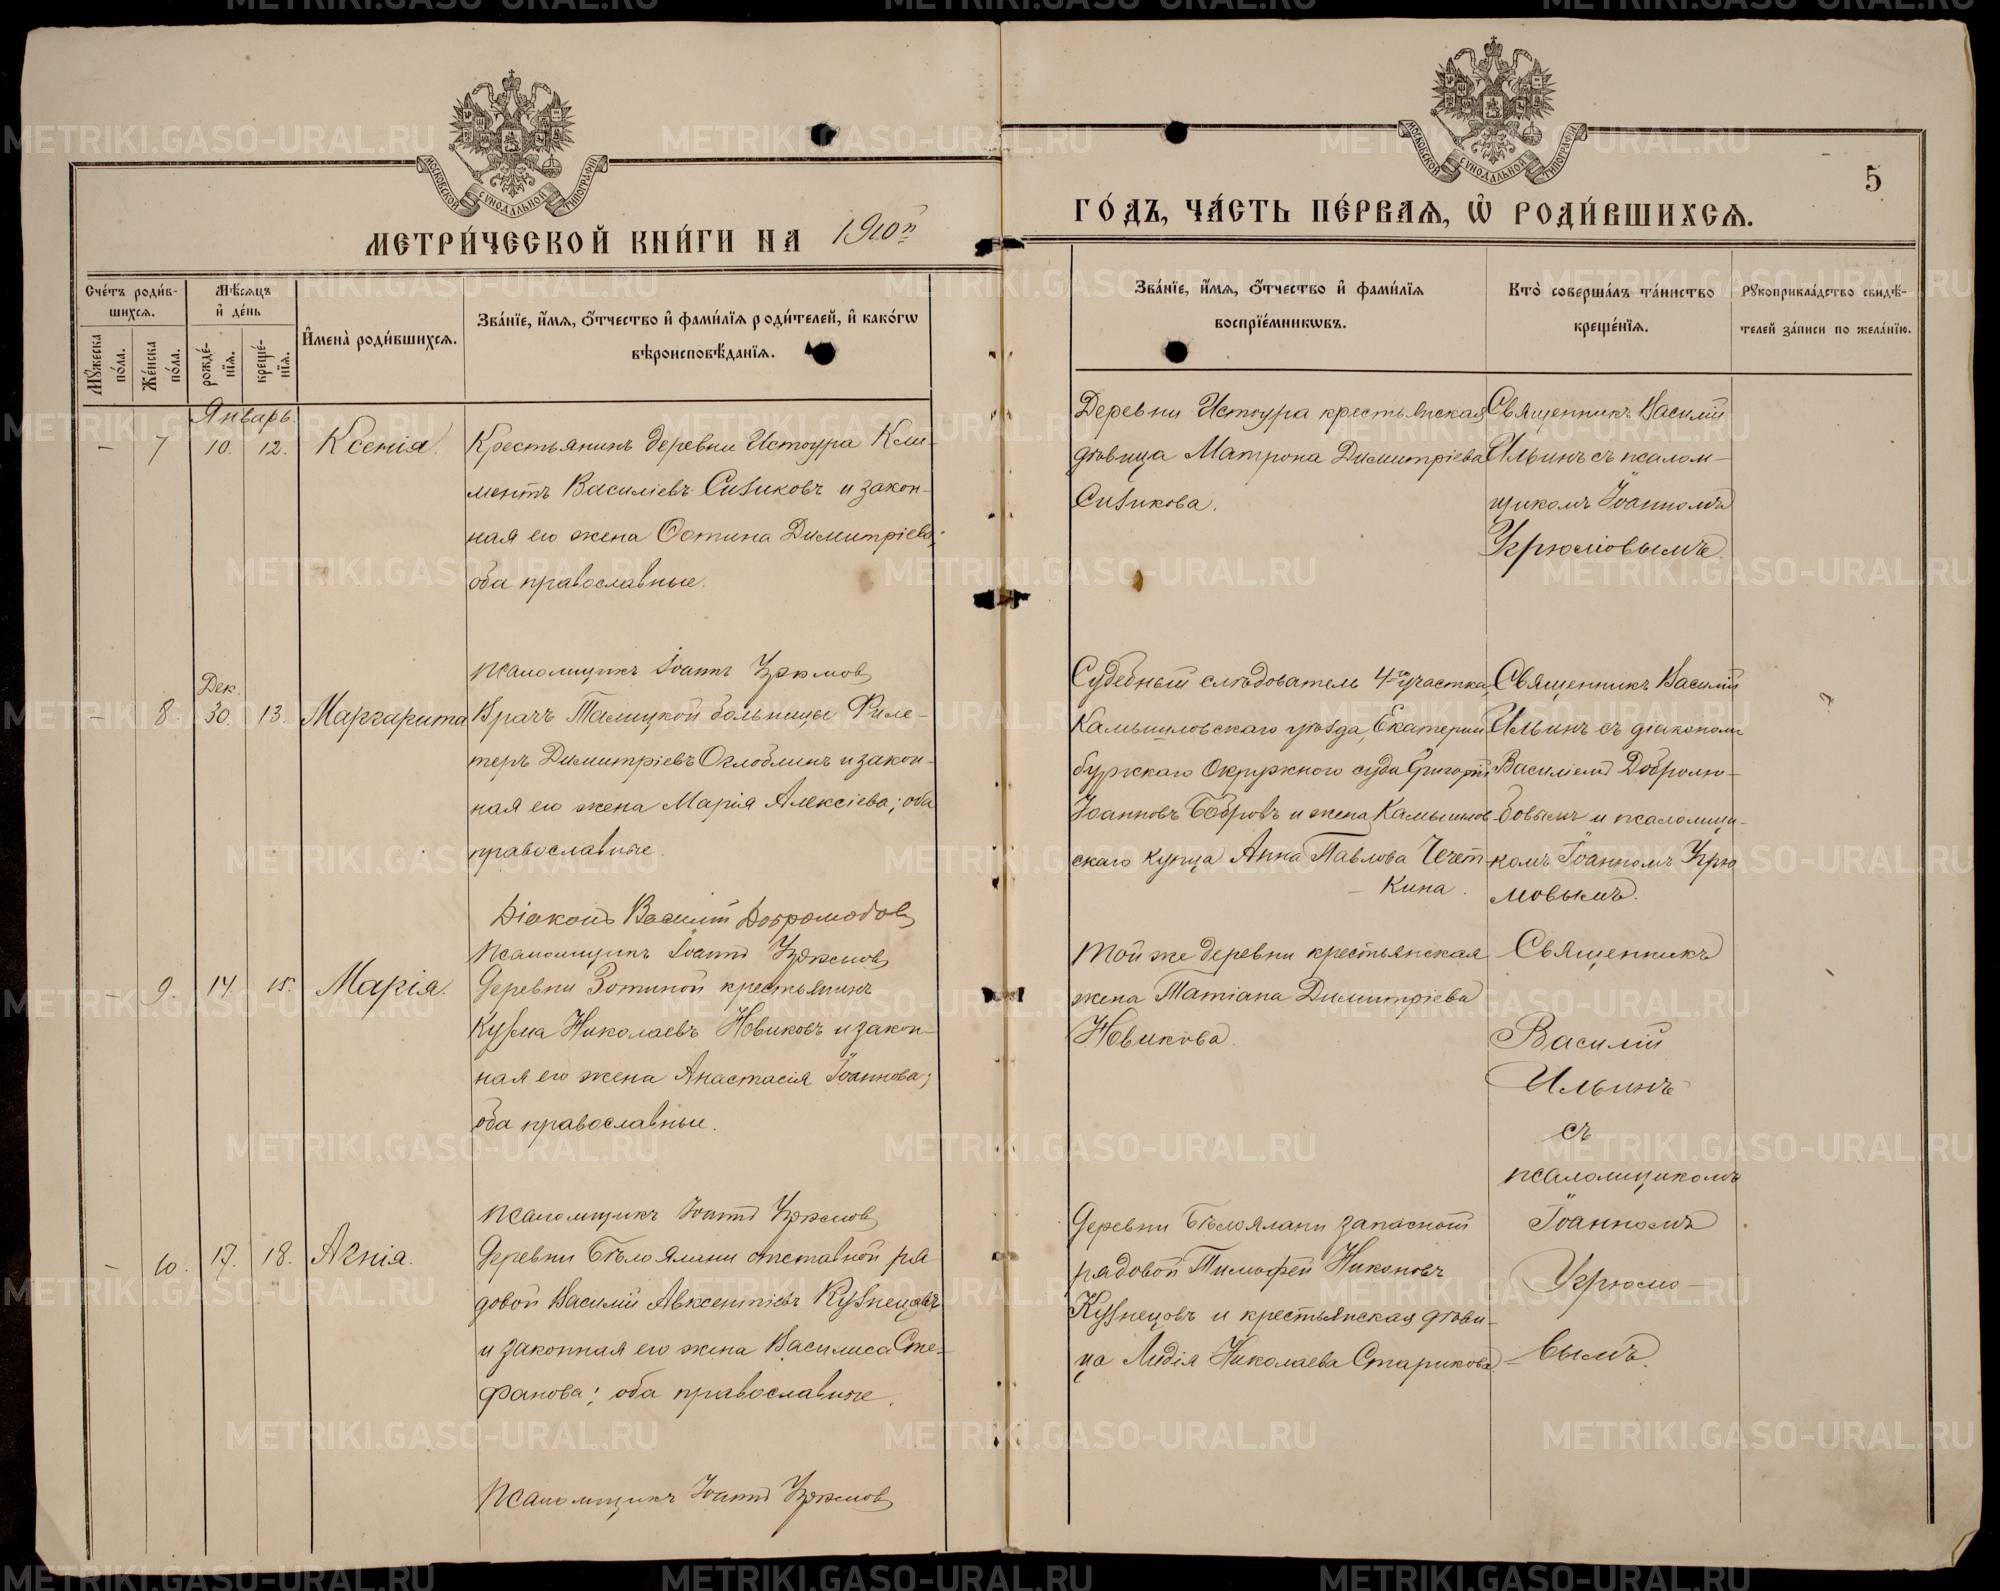 МОСКОВСКОЙ СѴНОДАЛЬНОЙ ТИПОГРАФІИ
МОСКОВСКОЙ СѴНОДАЛЬНОЙ ТИПОГРАФІИ
5
МЕТРИ́ЧЕСКОЙ КНИ́ГИ НА 1910й
ГО́ДЪ, ЧА́СТЬ ПЕ́РВАѦ, Ѽ РОДИ́ВШИХСѦ.
Сче́тъ роди́в-
шихсѧ.
Мꙋ́жеска
по́ла.
Же́нска
по́ла.
Мѣ́сѧцъ
и҆ де́нь
рожде́-
нїѧ.
креще́-
нїѧ.
И҆мена̀ роди́вшихсѧ.
Зва́нїе, и҆́мѧ, ѻ҆́тчество и҆ фами́лїѧ роди́телей, и҆ како́гѡ
вѣроисповѣ́данїѧ.
Зва́нїе, и҆́мѧ, ѻ҆́тчество и҆ фами́лїѧ
воспрїе́мникѡвъ.
Кто̀ соверша́лъ та́инство
креще́нїѧ.
Рꙋкоприкла́дство свидѣ́-
телей за́писи по жела́нїю.
Январь.
- 7 10. 12. Ксенія.
Крестьянинъ деревни Истоура Кли-
ментъ Василіевъ Сизиковъ и закон-
ная его жена Фотина Димитріева;
оба православные.
Деревни Истоура крестьянская
дѣвица Матрона Димитріева
Сизикова.
Священникъ Василій
Ильинъ съ псалом-
щикомъ Іоанномъ
Угрюмовымъ.
Псаломщикъ Іоаннъ Угрюмовъ
Дек.
- 8. 30. 13. Маргарита
Врачъ Талицкой больницы Филе-
теръ Димитріевъ Оглоблинъ и закон-
ная его жена Марія Алексіева; оба
православные.
Судебный слѣдователь 4-го участка,
Камышловскаго уѣзда, Екатерин
бургскаго Окружного суда Григорій
Іоанновъ Бобровъ и жена Камышлов
скаго купца Анна Павлова Чечет-
кина.
Священникъ Василій
Ильинъ съ діакономъ
Василіемъ Добролю-
бовымъ и псаломщи-
комъ Іоанномъ Угрю
мовымъ.
Діаконъ Василій Добролюбовъ
Псаломщикъ Іоаннъ Угрюмовъ
- 9. 14. 15. Марія.
Деревни Зотиной крестьянинъ
Кузма Николаевъ Новиковъ и закон-
ная его жена Анастасія Іоаннова;
оба православные.
Той же деревни крестьянская
жена Татіана Димитріева
Новикова.
Священникъ
Василій
Ильинъ
съ
псаломщикомъ
Іоанномъ
Угрюмо-
вымъ.
Псаломщикъ Іоаннъ Угрюмовъ
- 10. 17. 18. Агнія.
Деревни Бѣлоялани отставной ря
довой Василій Авксентіевъ Кузнецовъ
и законная его жена Василиса Сте-
фанова; оба православные.
Деревни Бѣлоялани запасной
рядовой Тимофей Никоновъ
Кузнецовъ и крестьянская дѣви-
ца Лидія Николаева Старикова.
Псаломщикъ Іоаннъ Угрюмовъ
METRIKI.GASO-URAL.RU